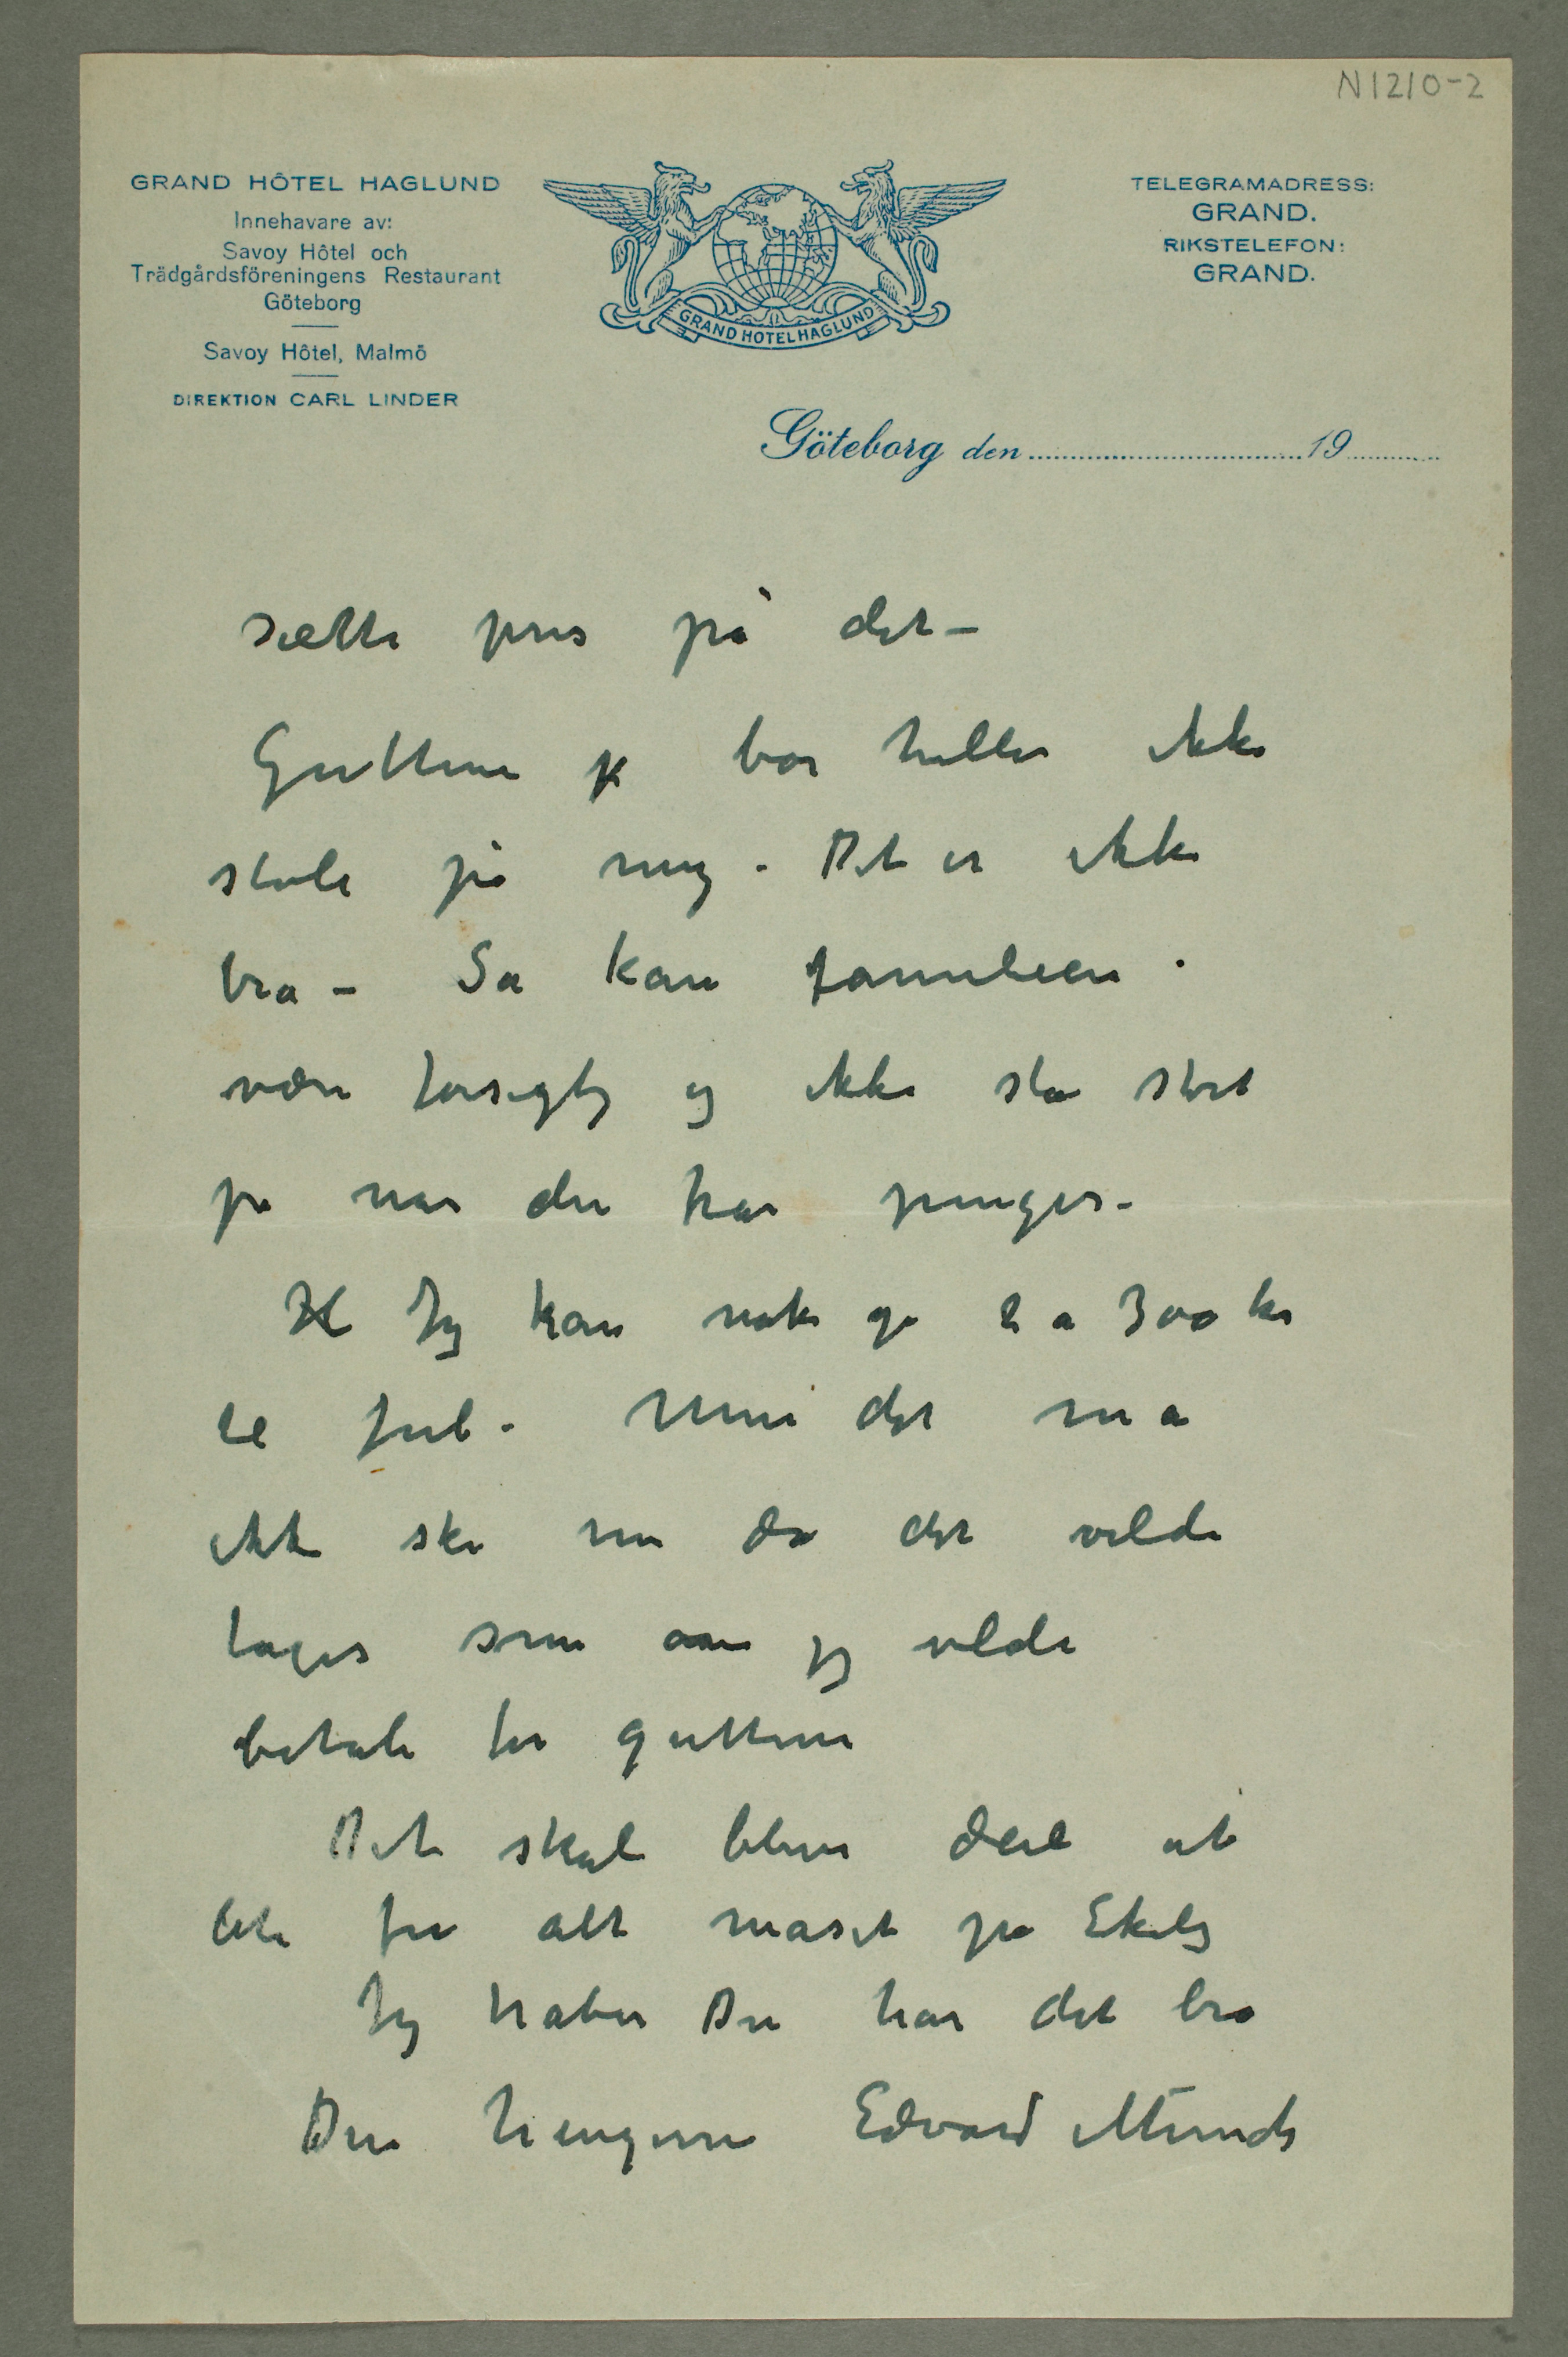 N1210-2
GRAND HÔTEL HAGLUND
Innehavare av:
Savoy Hôtel och
Trädgårdsföreningens Restaurant
Göteborg
Savoy Hôtel, Malmö
DIREKTION CARL LINDER
GRAND HOTEL HAGLUND
TELEGRAMADRESS:
GRAND.
RIKSTELEFON:
GRAND.
Göteborg den 19
sætte pris på det –
Guttene bør heller ikke
stole på mig. Det er ikke
bra – Så kan familien
være forsigtig og ikke slå stort
på når den har penger.
Jeg kan nok gi 2 a 300 kr
til Jul. Men det må
ikke ske nu da det vilde
tages som om jeg vilde
betale for guttene
Det skal blive deilig at
for alt maset på Ekely
Jeg håber Du har det bra
Din hengivne Edvard Munch